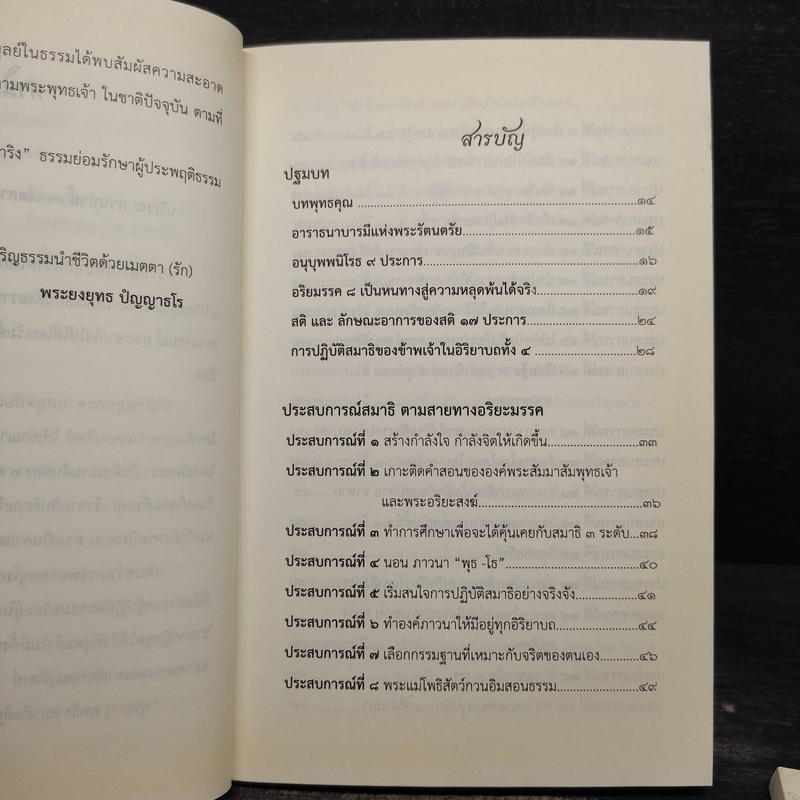 ูลย์ในธรรมได้พบสัมผัสความสะอาด
ามพระพุทธเจ้า ในชาติปัจจุบัน ตามที่
าริง” ธรรมย่อมรักษาผู้ประพฤติธรรม
ริญธรรมนำชีวิตด้วยเมตตา (รัก)
พระยงยุทธ ปัญญาธโร
สารบัญ
ปฐมบท
บทพุทธคุณ ...............................................................๑๔
อาราธนาบารมีแห่งพระรัตนตรัย.......................................๑๕
อนุบุพพนิโรธ ๙ ประการ................................................๑๖
อริยมรรค ๘ เป็นหนทางสู่ความหลุดพ้นได้จริง......................๑๙
สติ และ ลักษณะอาการของสติ ๑๗ ประการ.........................๒๔
การปฏิบัติสมาธิของข้าพเจ้าในอิริยาบถทั้ง ๔ .......................๒๘
ประสบการณ์สมาธิ ตามสายทางอริยะมรรค
ประสบการณ์ที่ ๑ สร้างกำลังใจ กำลังจิตให้เกิดขึ้น.....................๓๓
ประสบการณ์ที่ ๒ เกาะติดคำสอนขององค์พระสัมมาสัมพุทธเจ้า
และพระอริยะสงฆ์.........................................๓๖
ประสบการณ์ที่ ๓ ทำการศึกษาเพื่อจะได้คุ้นเคยกับสมาธิ ๓ ระดับ...๓๘
ประสบการณ์ที่ ๔ นอน ภาวนา “พุธ -โธ”..............................๔๐
ประสบการณ์ที่ ๕ เริ่มสนใจการปฏิบัติสมาธิอย่างจริงจัง..............๔๑
ประสบการณ์ที่ ๖ ทำองค์ภาวนาให้มีอยู่ทุกอิริยาบถ...................๔๔
ประสบการณ์ที่ ๗ เลือกกรรมฐานที่เหมาะกับจริตของตนเอง.........๔๖
ประสบการณ์ที่ ๘ พระแม่โพธิสัตว์กวนอิมสอนธรรม...................๔๙